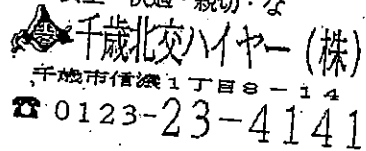 快適・親切・な
千歳北交ハイヤー(株)
千歳市信濃1丁目8-14
☎0123-23-4141